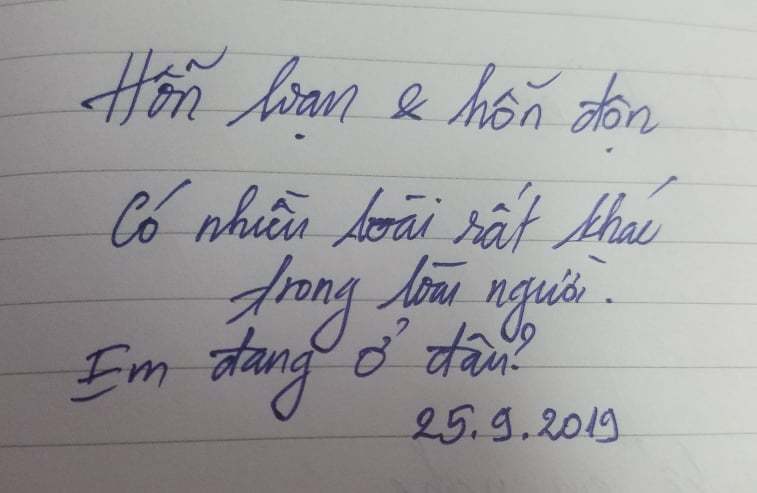 Hỗn loạn & hỗn độn
Có nhiều loài rất khác
trong loài người.
Em đang ở đâu?
25.9.2019